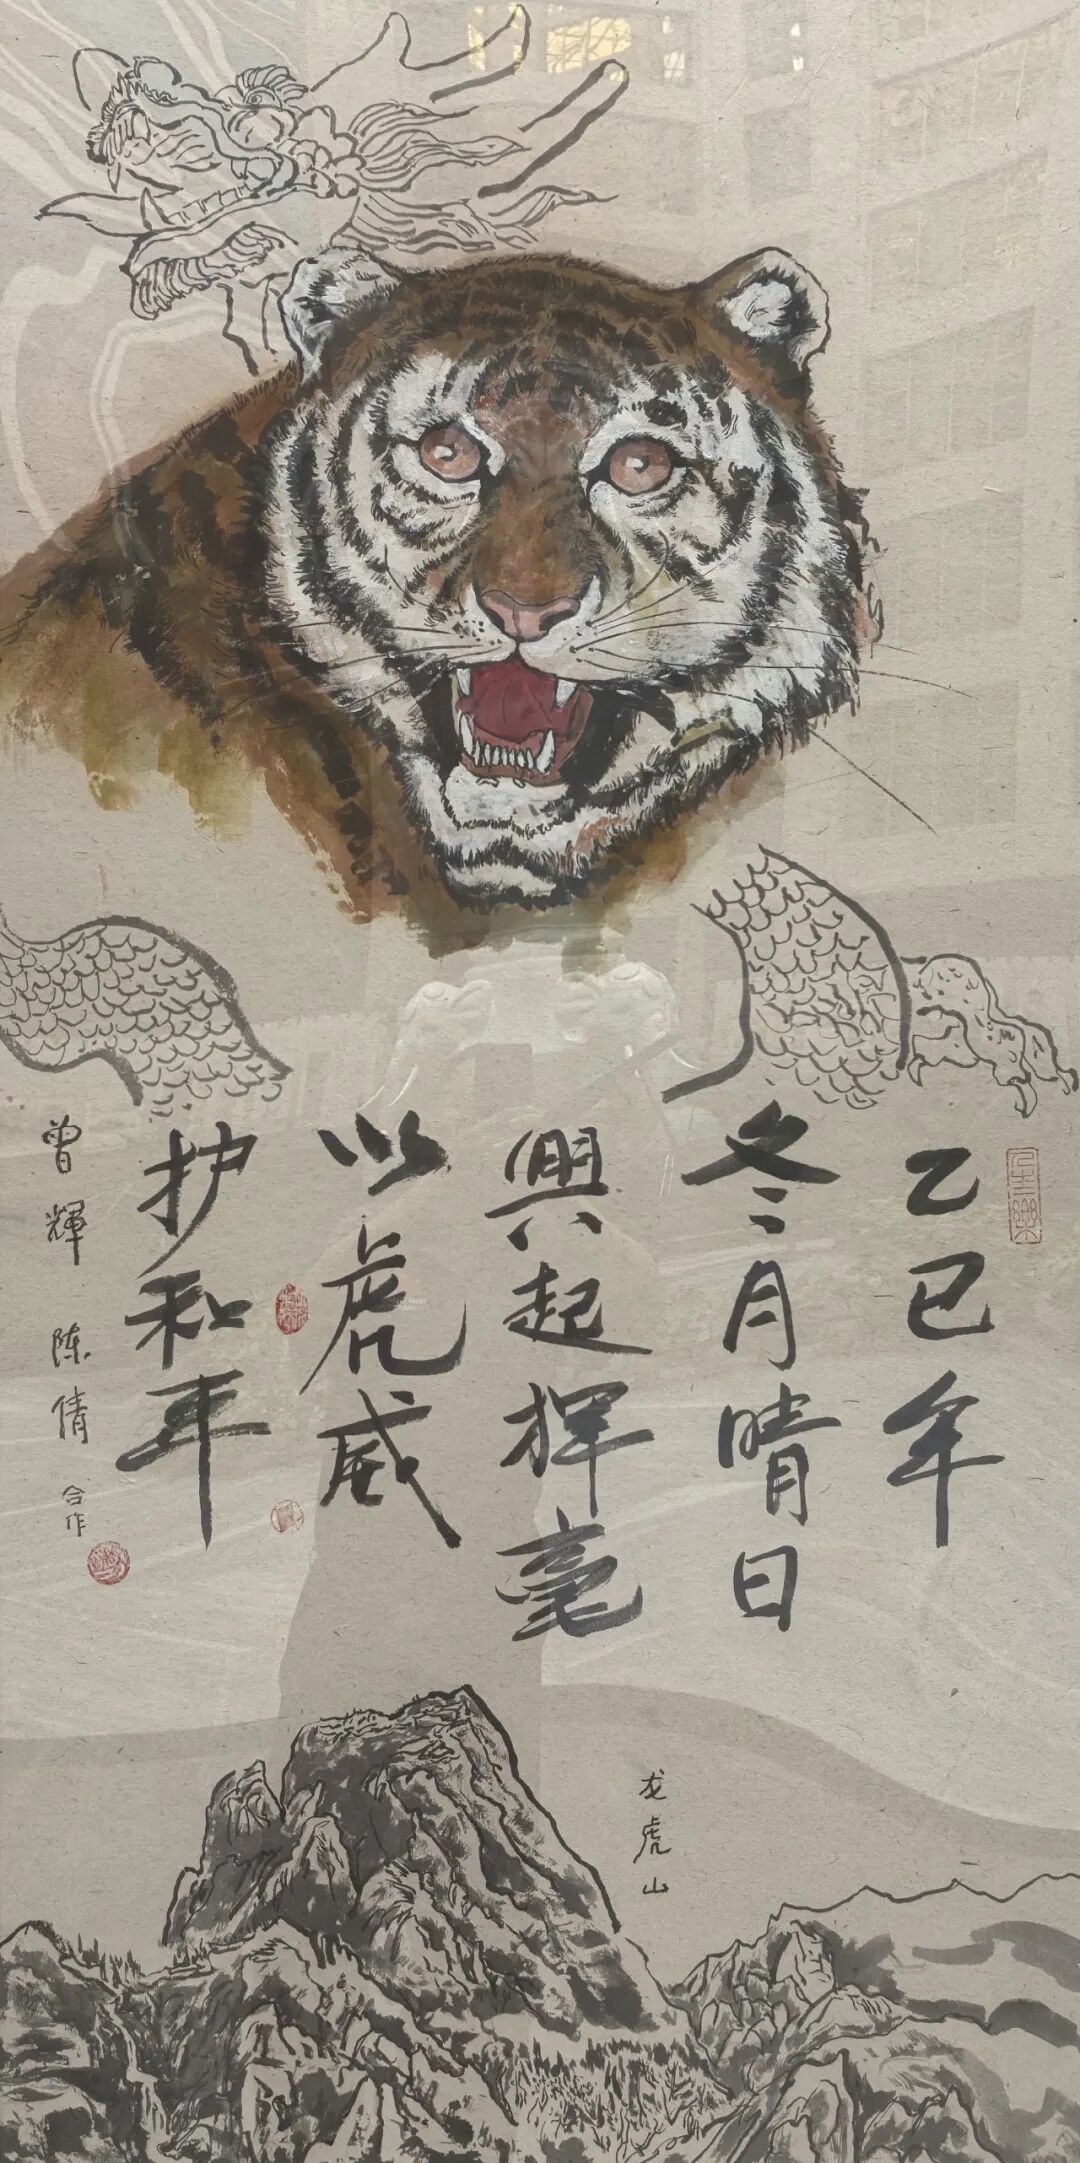 乙巳年
冬月晴日
興起挥毫
以虎威
护和平
曾輝 陈倩 合作
龙虎山